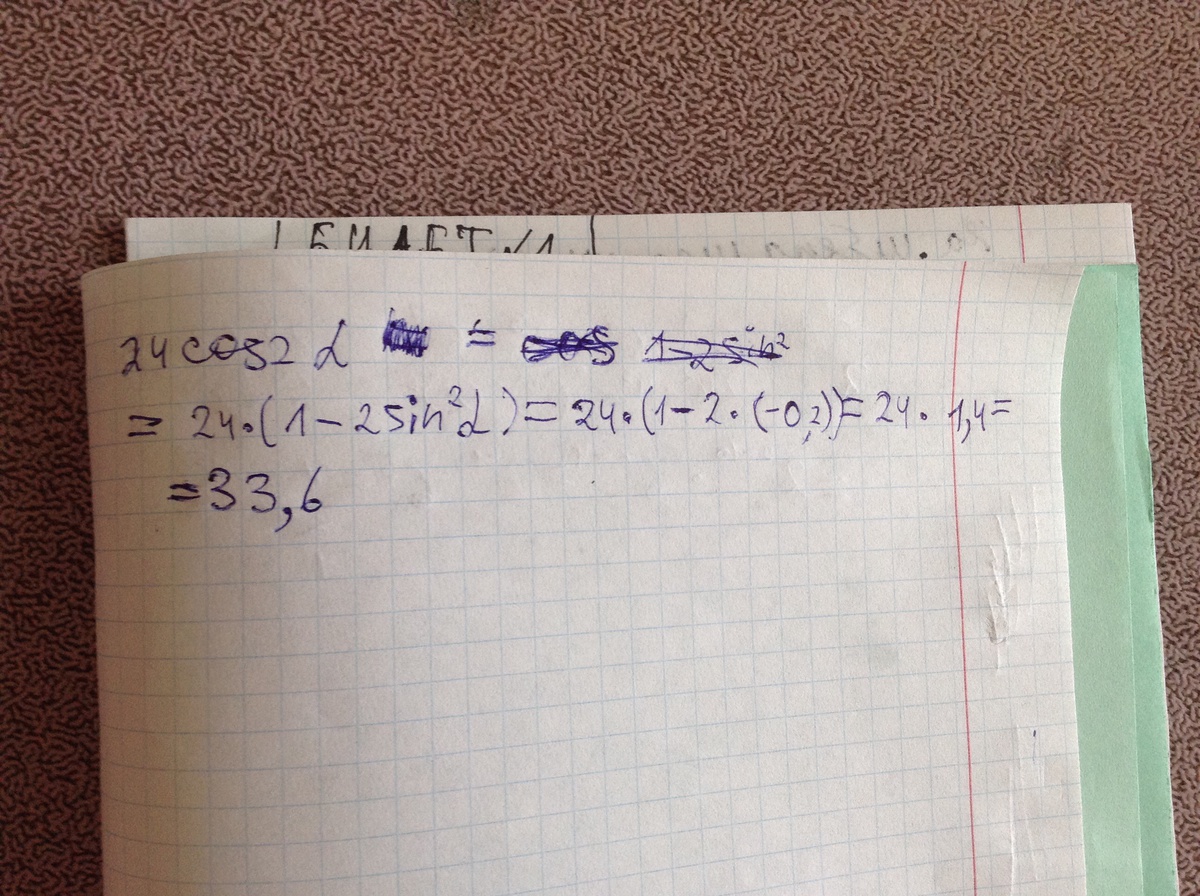 БИЛЕТ √1
24cos2α =
= 24·(1-2sin²α)= 24·(1-2·(-0,2))= 24· 1,4=
=33,6